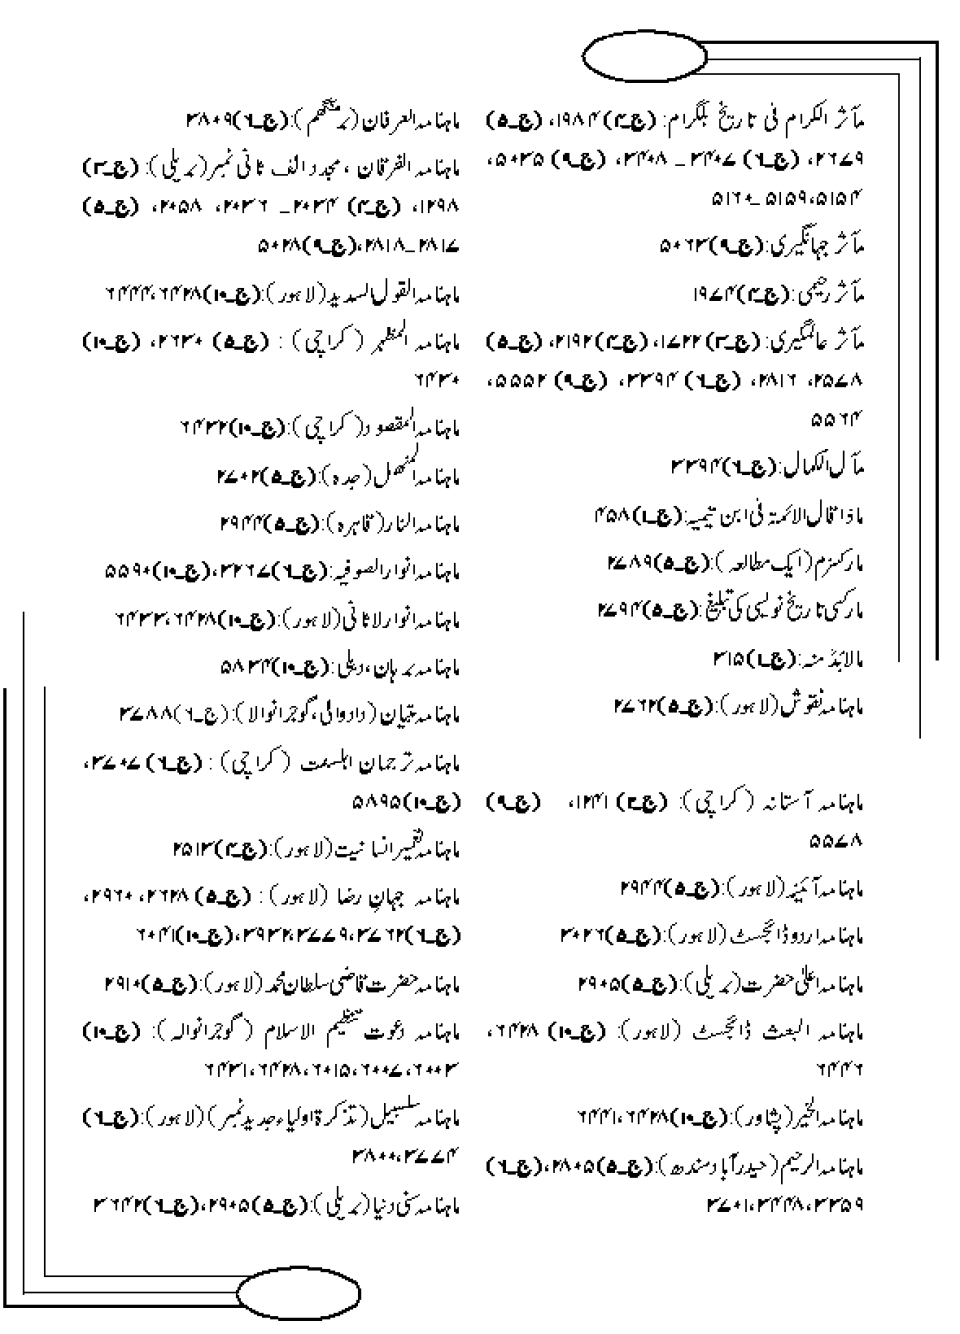 مآثر الکرام فی تاریخ بلگرام: (ج۔۴) ۱۹۸۴، (ج۔۵)
۲۶۷۹، (ج۔۶) ۳۴۰۷ ۔ ۳۴۰۸، (ج۔۹) ۵۰۳۵،
۵۱۵۴، ۵۱۵۹۔ ۵۱۶۰
مآثر جہانگیری: (ج۔۹) ۵۰۶۳
مآثر رحیمی: (ج۔۴) ۱۹۷۴
مآثر عالمگیری: (ج۔۳) ۱۷۲۲، (ج۔۴) ۲۱۹۲، (ج۔۵)
۲۵۷۸، ۲۸۱۶، (ج۔۶) ۳۳۹۴، (ج۔۹) ۵۵۵۲،
۵۵۶۴
مآل الکمال: (ج۔۶) ۳۳۹۴
ماذا قال الائمۃ فی ابن تیمیہ: (ج۔۱) ۴۵۸
مارکسزم (ایک مطالعہ): (ج۔۵) ۲۷۸۹
مارکسی تاریخ نویسی کی تبلیغ: (ج۔۵) ۲۷۹۴
مالابُدّ منہ: (ج۔۱) ۳۱۵
ماہنامہ نقوش (لاہور): (ج۔۵) ۲۷۶۲
ماہنامہ آستانہ (کراچی): (ج۔۲) ۱۲۴۱، (ج۔۹)
۵۵۷۸
ماہنامہ آئینہ (لاہور): (ج۔۵) ۲۹۴۴
ماہنامہ اردو ڈائجسٹ (لاہور): (ج۔۵) ۳۰۲۶
ماہنامہ اعلیٰ حضرت (بریلی): (ج۔۵) ۲۹۰۵
ماہنامہ البعث ڈائجسٹ (لاہور): (ج۔۱۰) ۶۴۲۸،
۶۴۴۶
ماہنامہ الخیر (پشاور): (ج۔۱۰) ۶۴۲۸، ۶۴۴۱
ماہنامہ الرحیم (حیدرآباد سندھ): (ج۔۵) ۲۸۰۵، (ج۔۶)
۳۳۵۹، ۳۴۴۸، ۳۷۰۱
ماہنامہ العرفان (برمنگھم): (ج۔۶) ۳۸۰۹
ماہنامہ الفرقان، مجدد الف ثانی نمبر (بریلی): (ج۔۲)
۱۲۹۸، (ج۔۴) ۲۰۳۴ ۔ ۲۰۳۶، ۲۰۵۸، (ج۔۵)
۲۸۱۷ ۔ ۲۸۱۸، (ج۔۹) ۵۰۲۸
ماہنامہ القول السدید (لاہور): (ج۔۱۰) ۶۴۲۸، ۶۴۴۴
ماہنامہ المظہر (کراچی): (ج۔۵) ۲۶۳۰، (ج۔۱۰)
۶۴۳۰
ماہنامہ المقصود (کراچی): (ج۔۱۰) ۶۴۳۲
ماہنامہ المنھل (جدہ): (ج۔۵) ۲۷۰۲
ماہنامہ النار (قاہرہ): (ج۔۵) ۲۹۴۴
ماہنامہ انوار الصوفیہ: (ج۔۶) ۳۲۶۷، (ج۔۱۰) ۵۵۹۰
ماہنامہ انوار لاثانی (لاہور): (ج۔۱۰) ۶۴۲۸، ۶۴۳۳
ماہنامہ برہان، دہلی: (ج۔۱۰) ۵۸۳۴
ماہنامہ تبیان (داروالی، گوجرانوالا): (ج۔۶) ۳۷۸۸
ماہنامہ ترجمان اہلسنت (کراچی): (ج۔۶) ۳۷۰۷،
(ج۔۱۰) ۵۸۹۵
ماہنامہ تعمیر انسانیت (لاہور): (ج۔۴) ۲۵۱۳
ماہنامہ جہانِ رضا (لاہور): (ج۔۵) ۲۶۲۸، ۲۹۶۰،
(ج۔۶) ۳۷۶۲، ۳۷۷۹، ۳۹۳۲، (ج۔۱۰) ۶۰۴۱
ماہنامہ حضرت قاضی سلطان محمد (لاہور): (ج۔۵) ۲۹۱۰
ماہنامہ دعوت تنظیم الاسلام (گوجرانوالہ): (ج۔۱۰)
۶۰۰۲، ۶۰۰۷، ۶۰۱۵، ۶۴۲۸، ۶۴۳۱
ماہنامہ سلسبیل (تذکرۃ اولیاء جدید نمبر) (لاہور): (ج۔۶)
۳۷۷۴، ۳۸۰۰
ماہنامہ سنی دنیا (بریلی): (ج۔۵) ۲۹۰۵، (ج۔۶) ۳۶۴۲